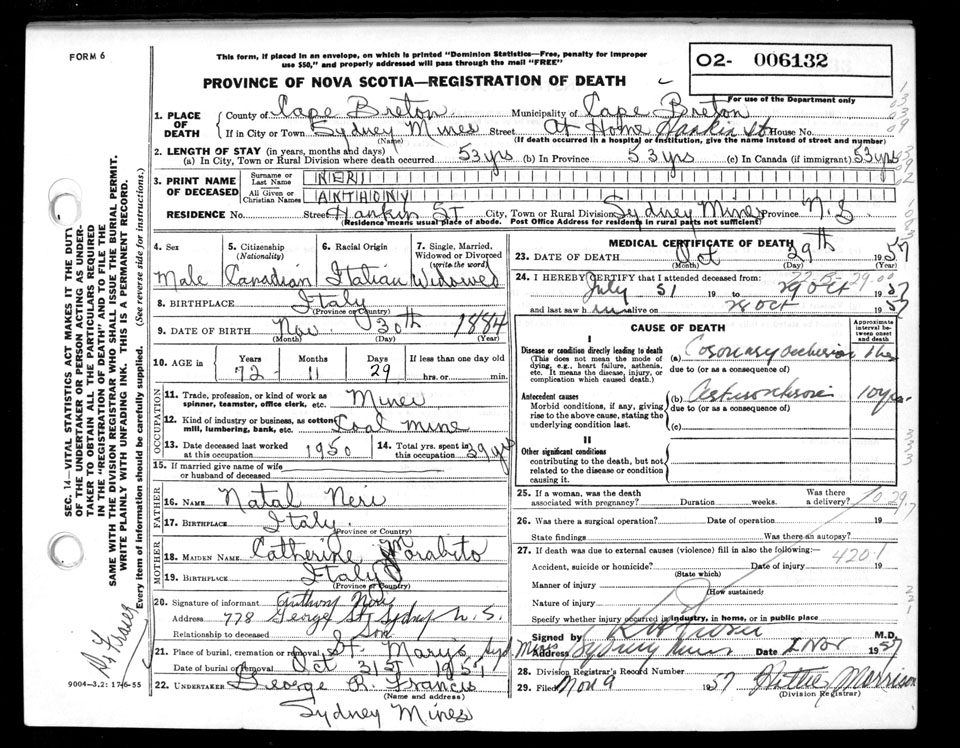 FORM 6
This form, if placed in an envelope, on which is printed "Dominion Statistics—Free, penalty for improper
use $50," and properly addressed will pass through the mail "FREE"
O2- 006132
PROVINCE OF NOVA SCOTIA—REGISTRATION OF DEATH
For use of the Department only
1. PLACE OF DEATH
County of Cape Breton Municipality of Cape Breton
If in City or Town Sydney Mines Street At Home Hankin St House No.
(Name) (If death occurred in a hospital or institution, give the name instead of street and number)
2. LENGTH OF STAY (in years, months and days)
(a) In City, Town or Rural Division where death occurred 53 yrs (b) In Province 53 yrs (c) In Canada (if immigrant) 53 yrs
3. PRINT NAME OF DECEASED
Surname or Last Name NERI
All Given or Christian Names ANTHONY
RESIDENCE No. Street Hankin ST City, Town or Rural Division Sydney Mines Province N.S
(Residence means usual place of abode. Post Office Address for residents in rural parts not sufficient)
4. Sex Male
5. Citizenship (Nationality) Canadian
6. Racial Origin Italian
7. Single, Married, Widowed or Divorced (write the word) Widowed
8. BIRTHPLACE Italy
(Province or Country)
9. DATE OF BIRTH Nov. 30th 1884
(Month) (Day) (Year)
10. AGE in Years 72 Months 11 Days 29 If less than one day old
hrs. or min.
OCCUPATION
11. Trade, profession, or kind of work as spinner, teamster, office clerk, etc. Miner
12. Kind of industry or business, as cotton mill, lumbering, bank, etc. Coal Mine
13. Date deceased last worked at this occupation 1950
14. Total yrs. spent in this occupation 29 yrs
15. If married give name of wife or husband of deceased
FATHER
16. NAME Natal Neri
17. BIRTHPLACE Italy
(Province or Country)
MOTHER
18. MAIDEN NAME Catherine Morabito
19. BIRTHPLACE Italy
(Province or Country)
20. Signature of informant Anthony Neri
Address 778 George St. Sydney N.S.
Relationship to deceased Son
21. Place of burial, cremation or removal St. Mary's Syd. Mines
Date of burial or removal Oct 31st 1957
22. UNDERTAKER George R. Francis
(Name and address)
Sydney Mines
MEDICAL CERTIFICATE OF DEATH
23. DATE OF DEATH Oct 29th 1957
(Month) (Day) (Year)
24. I HEREBY CERTIFY that I attended deceased from:
July 51 19 to 29 Oct 1957
and last saw him alive on 28 Oct 1957
CAUSE OF DEATH
Approximate interval between onset and death
I
Disease or condition directly leading to death
(This does not mean the mode of dying, e.g., heart failure, asthenia, etc. It means the disease, injury, or complication which caused death.)
(a) Coronary occlusion
due to (or as a consequence of)
Antecedent causes
Morbid conditions, if any, giving rise to the above cause, stating the underlying condition last.
(b) 10 yrs
due to (or as a consequence of)
(c)
II
Other significant conditions
contributing to the death, but not related to the disease or condition causing it.
25. If a woman, was the death associated with pregnancy? Duration weeks. Was there a delivery?
26. Was there a surgical operation? Date of operation 19
State findings Was there an autopsy?
27. If death was due to external causes (violence) fill in also the following:—
420.1
Accident, suicide or homicide? Date of injury 19
(State which)
Manner of injury
(How sustained)
Nature of injury
Specify whether injury occurred in industry, in home, or in public place
Signed by M.D.
Address Sydney Mines Date 2 Nov 1957
28. Division Registrar's Record Number
29. Filed Nov 9 1957 Hattie Morrison
(Division Registrar)
SEC. 14—VITAL STATISTICS ACT MAKES IT THE DUTY
OF THE UNDERTAKER OR PERSON ACTING AS UNDERTAKER TO OBTAIN ALL THE PARTICULARS REQUIRED
IN THE "REGISTRATION OF DEATH" AND TO FILE THE
SAME WITH THE DIVISION REGISTRAR WHO SHALL ISSUE THE BURIAL PERMIT.
WRITE PLAINLY WITH UNFADING INK. THIS IS A PERMANENT RECORD.
Every item of information should be carefully supplied. (See reverse side for instructions.)
9004—3.2: 17-6-55